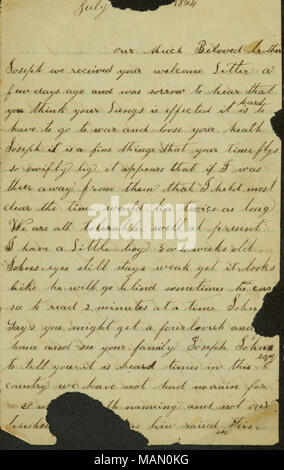 July 1864
our Much Beloved brother
Joseph we received your welcome Letter a
few days ago and was sorrow to hear that
you think your Lungs is effected it is hard
have to go to war and loose your health
Joseph it is a fine things that your time flys
so swiftly by it appears that if I was
away from them that I held most
dear the time would be twice as long
We are all tolerable well at present
I have a Little boy 3 or 4 weeks old
Johns eyes still stays weak yet it looks
like he will go blind sometimes he can
see to read 2 minutes at a time John
Says you might get a fourlouh and
home and see your family Joseph Johns
to tell your it is heard times in this
country we have not had no rain for
naming and not our
him raised in this
alamy
Image ID: MAN0KG
www.alamy.com